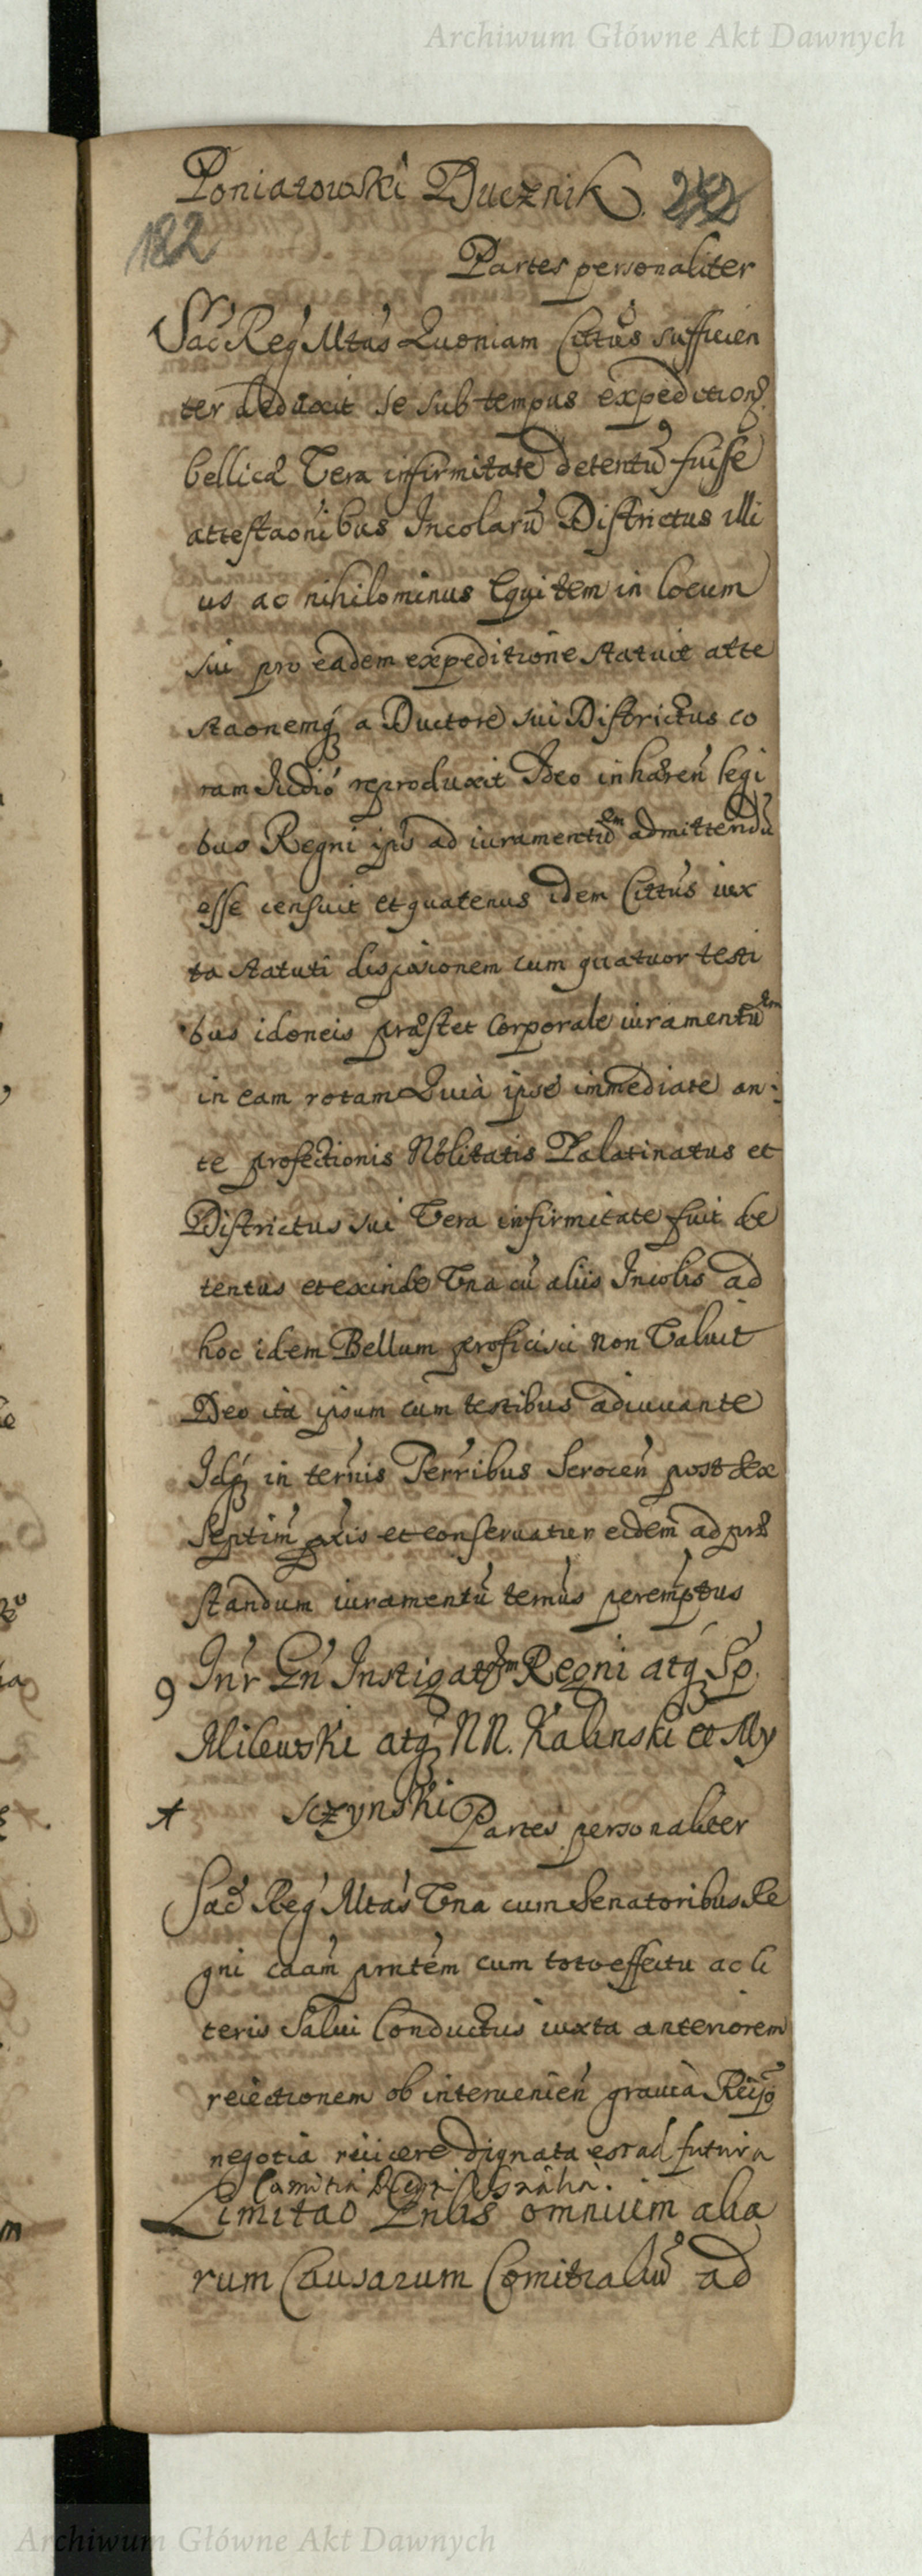 Archiwum Główne Akt Dawnych
Poniatowski Ducznik. 242
182
Partes personaliter
Sac Reg Mtas Quoniam Cittus sufficien
ter deduxit se sub tempus expedition
bellicæ Vera infirmitate detentū fuisse
attestaonibus Incolarū Districtus illi
us ac nihilominus Equitem in locum
sui pro eadem expeditione statuit atte
staonemq a Ductore sui Districtus co
ram Judio reproduxit Ideo inhæren legi
bus Regni ips ad iuramentū admittendū
esse censuit et quatenus idem Cittus iux
ta statuti disp̄aionem cum quatuor testi
bus idoneis præstet Corporale iuramentū
in eam rotam Quia ipse immediate an:
te profectionis Nōblitatis Palatinatus et
Districtus sui Vera infirmitate fuit de
tentus et exinde Vna cū aliis Incolis ad
hoc idem Bellum proficisci non Valuit
Deo ita ipsum cum testibus adiuuante
Idq in ternis Terribus Scrocen post
Septim et conseruatur eidem ad præ
standum iuramentū temus peremptus
Inr Gn Instigat Regni atq Sp.
Milewski atq NN. Kalinski et My
sczynski Partes personaliter
Sac Reg Mtas Vna cum Senatoribus Re
gni caam prntem cum toto effectu ac li
teris Salui Conductus iuxta anteriorem
reiectionem ob interuenien grauia Reip
negotia reiicere dignata est ad futura
Comitia Regni
Limitao Gnlis omnium alia
rum Causarum Comitialiū ad
Archiwum Główne Akt Dawnych